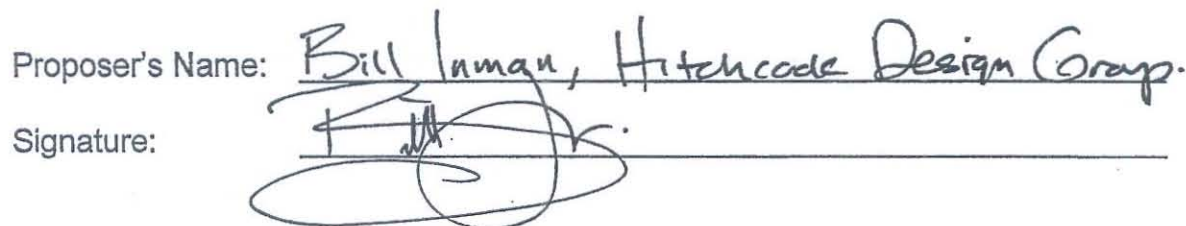 Proposer's Name: Bill Inman, Hitchcock Design Group.
Signature: